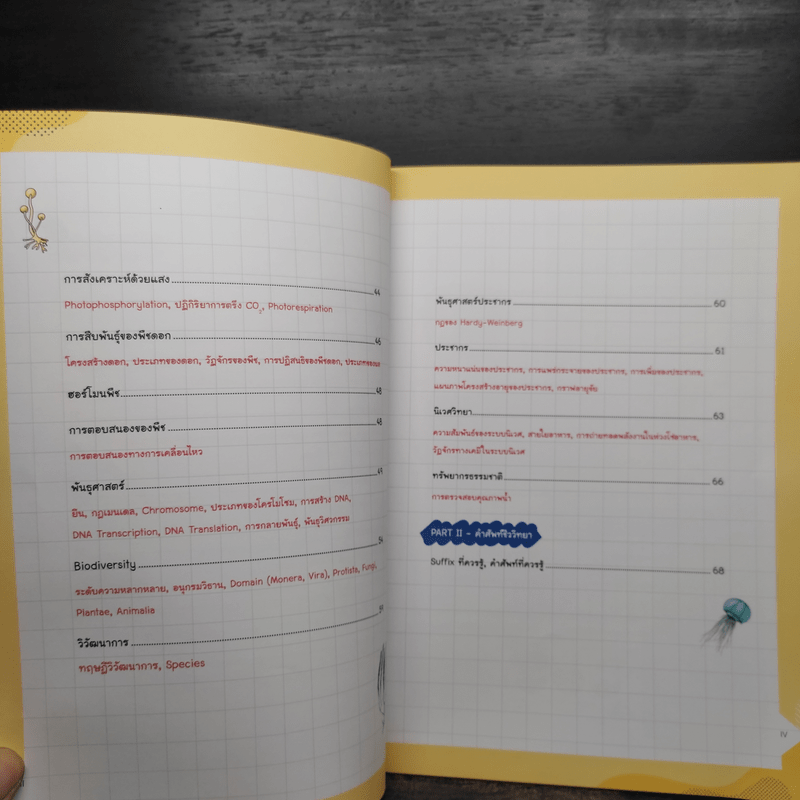 การสังเคราะห์ด้วยแสง 44
Photophosphorylation, ปฏิกิริยาการตรึง CO2, Photorespiration
การสืบพันธุ์ของพืชดอก 46
โครงสร้างดอก, ประเภทของดอก, วัฏจักรของพืช, การปฏิสนธิของพืชดอก,
ฮอร์โมนพืช 48
การตอบสนองของพืช 48
การตอบสนองทางการเคลื่อนไหว
พันธุศาสตร์
ยีน, กฎเมนเดล, Chromosome, ประเภทของโครโมโซม, การสร้าง DNA,
DNA Transcription, DNA Translation, การกลายพันธุ์, พันธุวิศวกรรม
Biodiversity
ระดับความหลากหลาย, อนุกรมวิธาน, Domain (Monera, Vira), Protista, Fungi,
Plantae, Animalia
วิวัฒนาการ
ทฤษฎีวิวัฒนาการ, Species
พันธุศาสตร์ประชากร 60
กฎของ Hardy-Weinberg
ประชากร 61
ความหนาแน่นของประชากร, การแพร่กระจายของประชากร, การเพิ่มของประชากร,
แผนภาพโครงสร้างอายุของประชากร, กราฟอายุขัย
นิเวศวิทยา 63
ความสัมพันธ์ของระบบนิเวศ, สายใยอาหาร, การถ่ายทอดพลังงานในห่วงโซ่อาหาร,
วัฏจักรทางเคมีในระบบนิเวศ
ทรัพยากรธรรมชาติ 66
การตรวจสอบคุณภาพน้ำ
PART II - คำศัพท์ชีววิทยา
Suffix ที่ควรรู้, คำศัพท์ที่ควรรู้ 68
IV